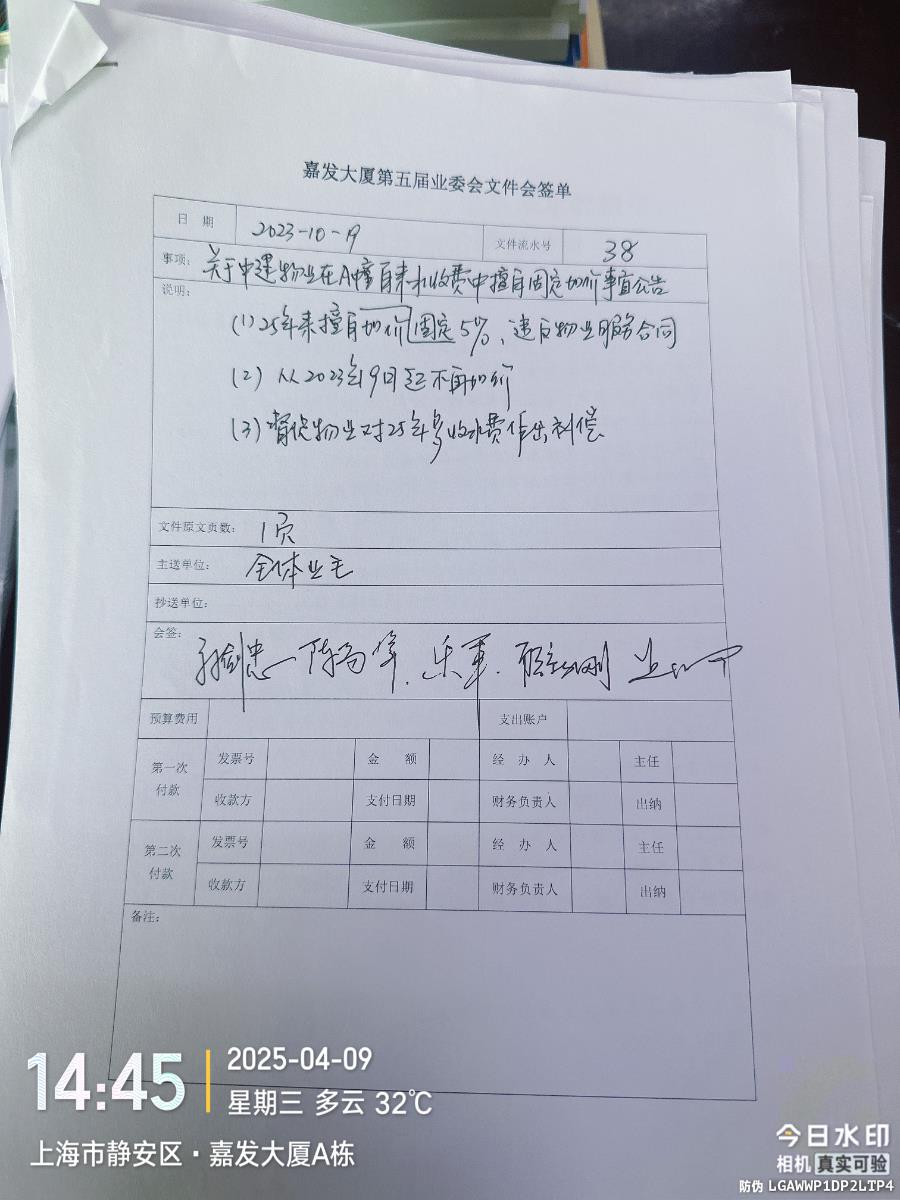 嘉发大厦第五届业委会文件会签单
日 期 2023-10-19 文件流水号 38
事项: 关于中建物业在A幢自来水收费中擅自固定加价事宜公告
说明:
(1) 25年来擅自加价固定5%、违反物业服务合同
(2) 从2023年9月起不再加价
(3) 督促物业对25年多收水费作出补偿
文件原文页数: 1页
主送单位: 全体业主
抄送单位:
会签:
预算费用 支出账户
第一次付款 发票号 金 额 经 办 人 主任
收款方 支付日期 财务负责人 出纳
第二次付款 发票号 金 额 经 办 人 主任
收款方 支付日期 财务负责人 出纳
备注:
14:45 2025-04-09
星期三 多云 32℃
上海市静安区·嘉发大厦A栋
今日水印
相机 真实可验
防伪 LGAWWP1DP2LTP4